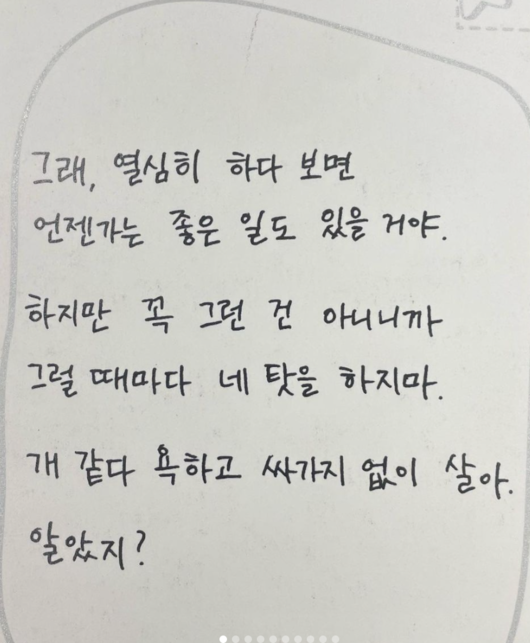 그래, 열심히 하다 보면
언젠가는 좋은 일도 있을 거야.
하지만 꼭 그런 건 아니니까
그럴 때마다 네 탓을 하지마.
개 같다 욕하고 싸가지 없이 살아.
알았지?